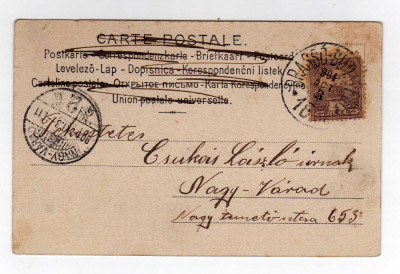 CARTE POSTALE.
Postkarte - Correspondenzkarte - Briefkaart - Postcard
Levelező-Lap - Dopisnica - Korespondenční listek
Cartolina postal - Открытое письмо - Karta Korespondencyjna
Union postale universelle.
Csukás László úrnak
Nagy-Várad
Nagy temető utcza 653